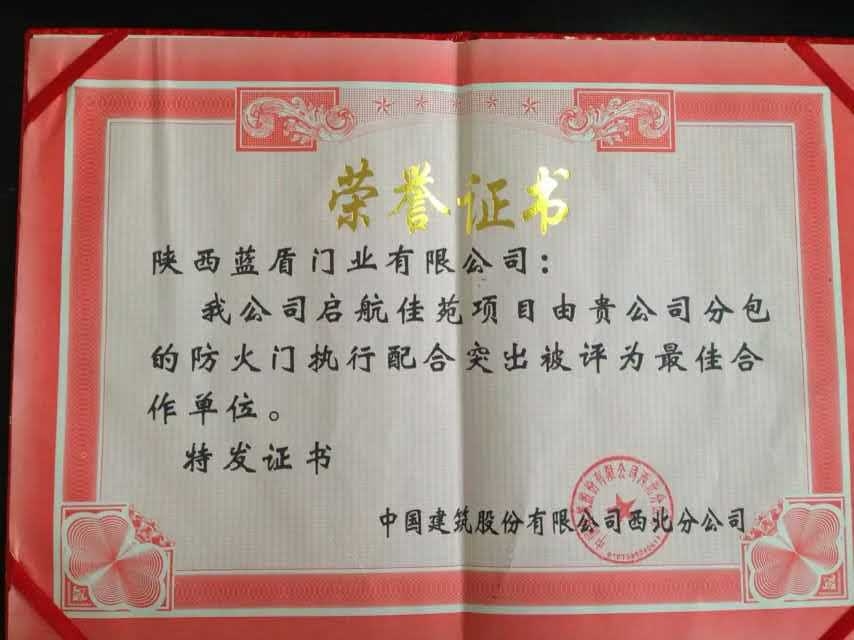 荣誉证书
陕西蓝盾门业有限公司：
我公司启航佳苑项目由贵公司分包
的防火门执行配合突出被评为最佳合
作单位。
特发证书
中国建筑股份有限公司西北分公司